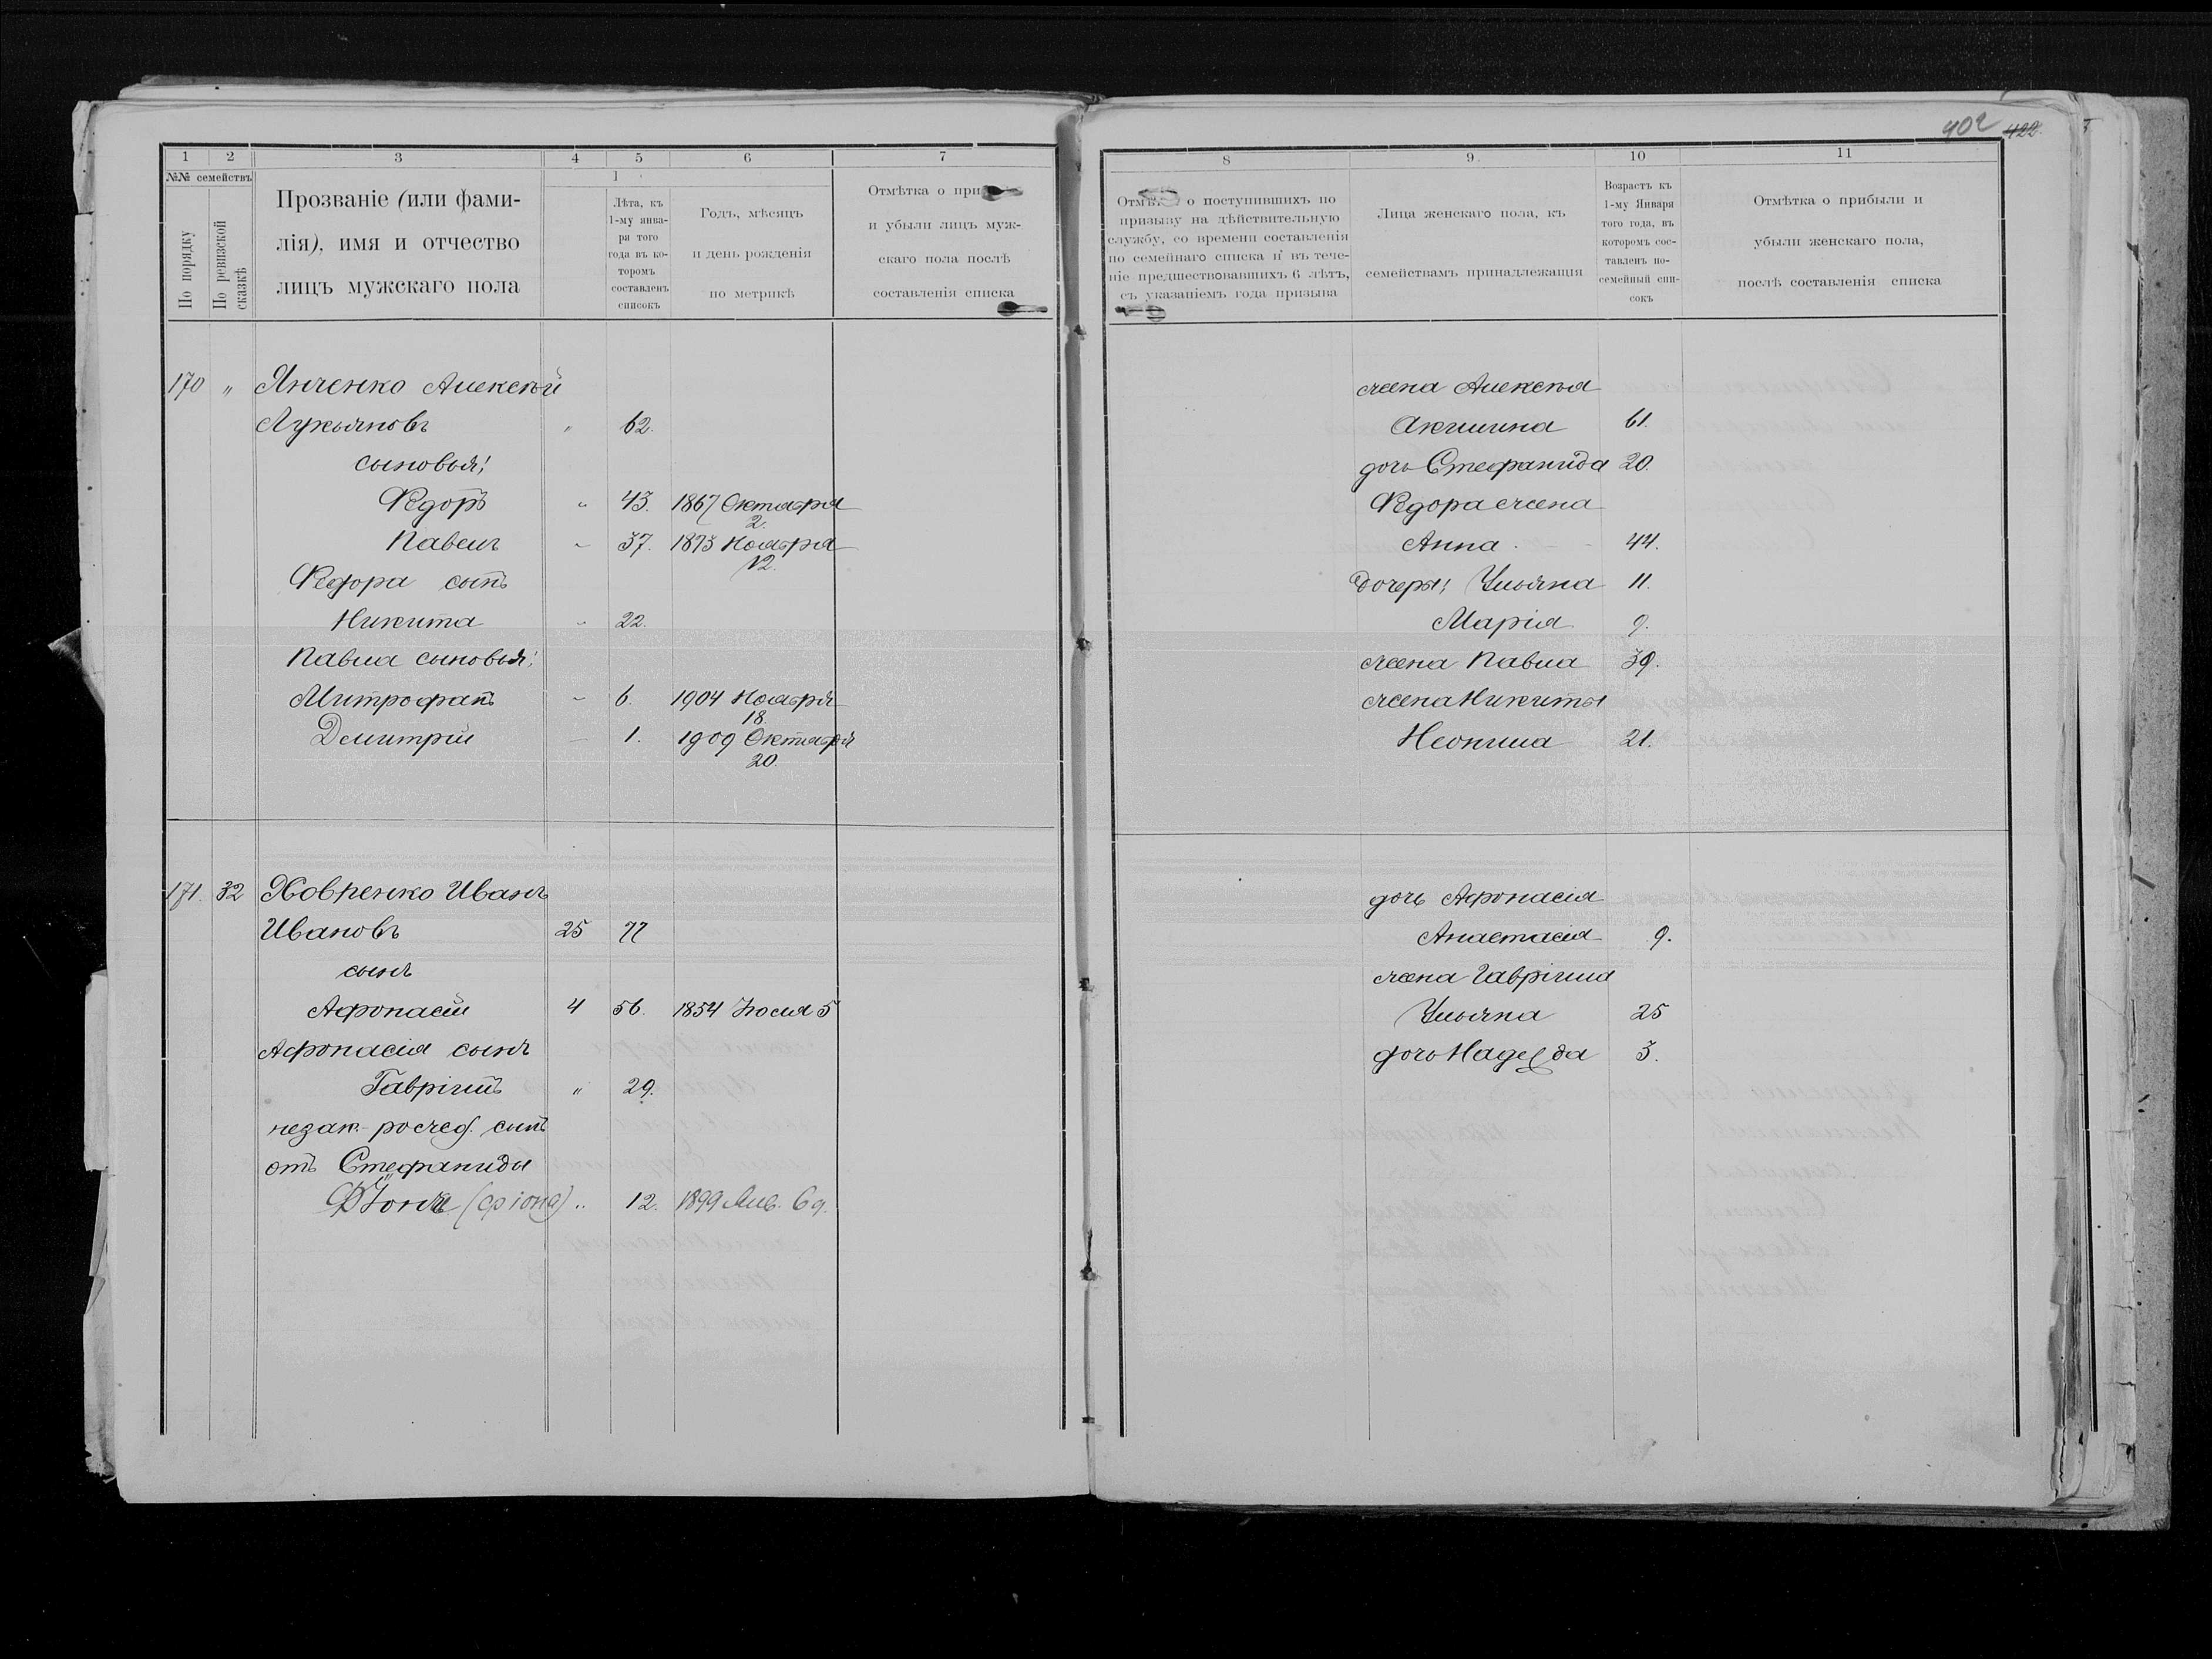 402 422.
1 2 3 4 5 6 7
№№ семействъ
По порядку
По ревизской сказкѣ
Прозваніе (или фами-
лія), имя и отчество
лицъ мужскаго пола
Лѣта, къ
1-му янва-
ря того
года въ ко-
торомъ
составленъ
списокъ
Годъ, мѣсяцъ
и день рожденія
по метрикѣ
Отмѣтка о
и убыли лицъ муж-
скаго пола послѣ
составленія списка
170 " Янченко Алексѣй
Лукьяновъ " 62.
сыновья:
Ѳедоръ " 43. 1867 Октября
2.
Павелъ " 37. 1873 Ноября
12.
Ѳедора сынъ
Никита " 22.
Павла сыновья:
Митрофанъ " 6. 1904 Ноября
18.
Дмитрій 1. 1909 Октября
20.
171. 32 Ховренко Иванъ
Ивановъ 25 77
сынъ
Афонасій 4 56. 1854 Іюля 5
Афонасія сынъ
Гавріилъ " 29.
незак. рожед. сынъ
отъ Стефаниды
(фіона) " 12. 1899 Янв. 6 д.
8 9. 10 11
о поступившихъ по
призыву на дѣйствительную
службу, со времени составленія
по семейнаго списка и въ тече-
ніе предшествовавшихъ 6 лѣтъ,
съ указаніемъ года призыва
Лица женскаго пола, къ
семействамъ принадлежащія
Возрастъ къ
1-му Января
того года, въ
которомъ сос-
тавленъ по-
семейный спи-
сокъ
Отмѣтка о прибыли и
убыли женскаго пола,
послѣ составленія списка
жена Алексѣя
Акилина 61.
дочь Стефанида 20.
Ѳедора жена
Анна 44.
дочери: Ульяна 11.
Марія 9.
жена Павла 39.
жена Никиты
Неонила 21.
дочь Афонасія
Анастасія 9.
жена Гавріила
Ульяна 25
дочь Надежда 3.